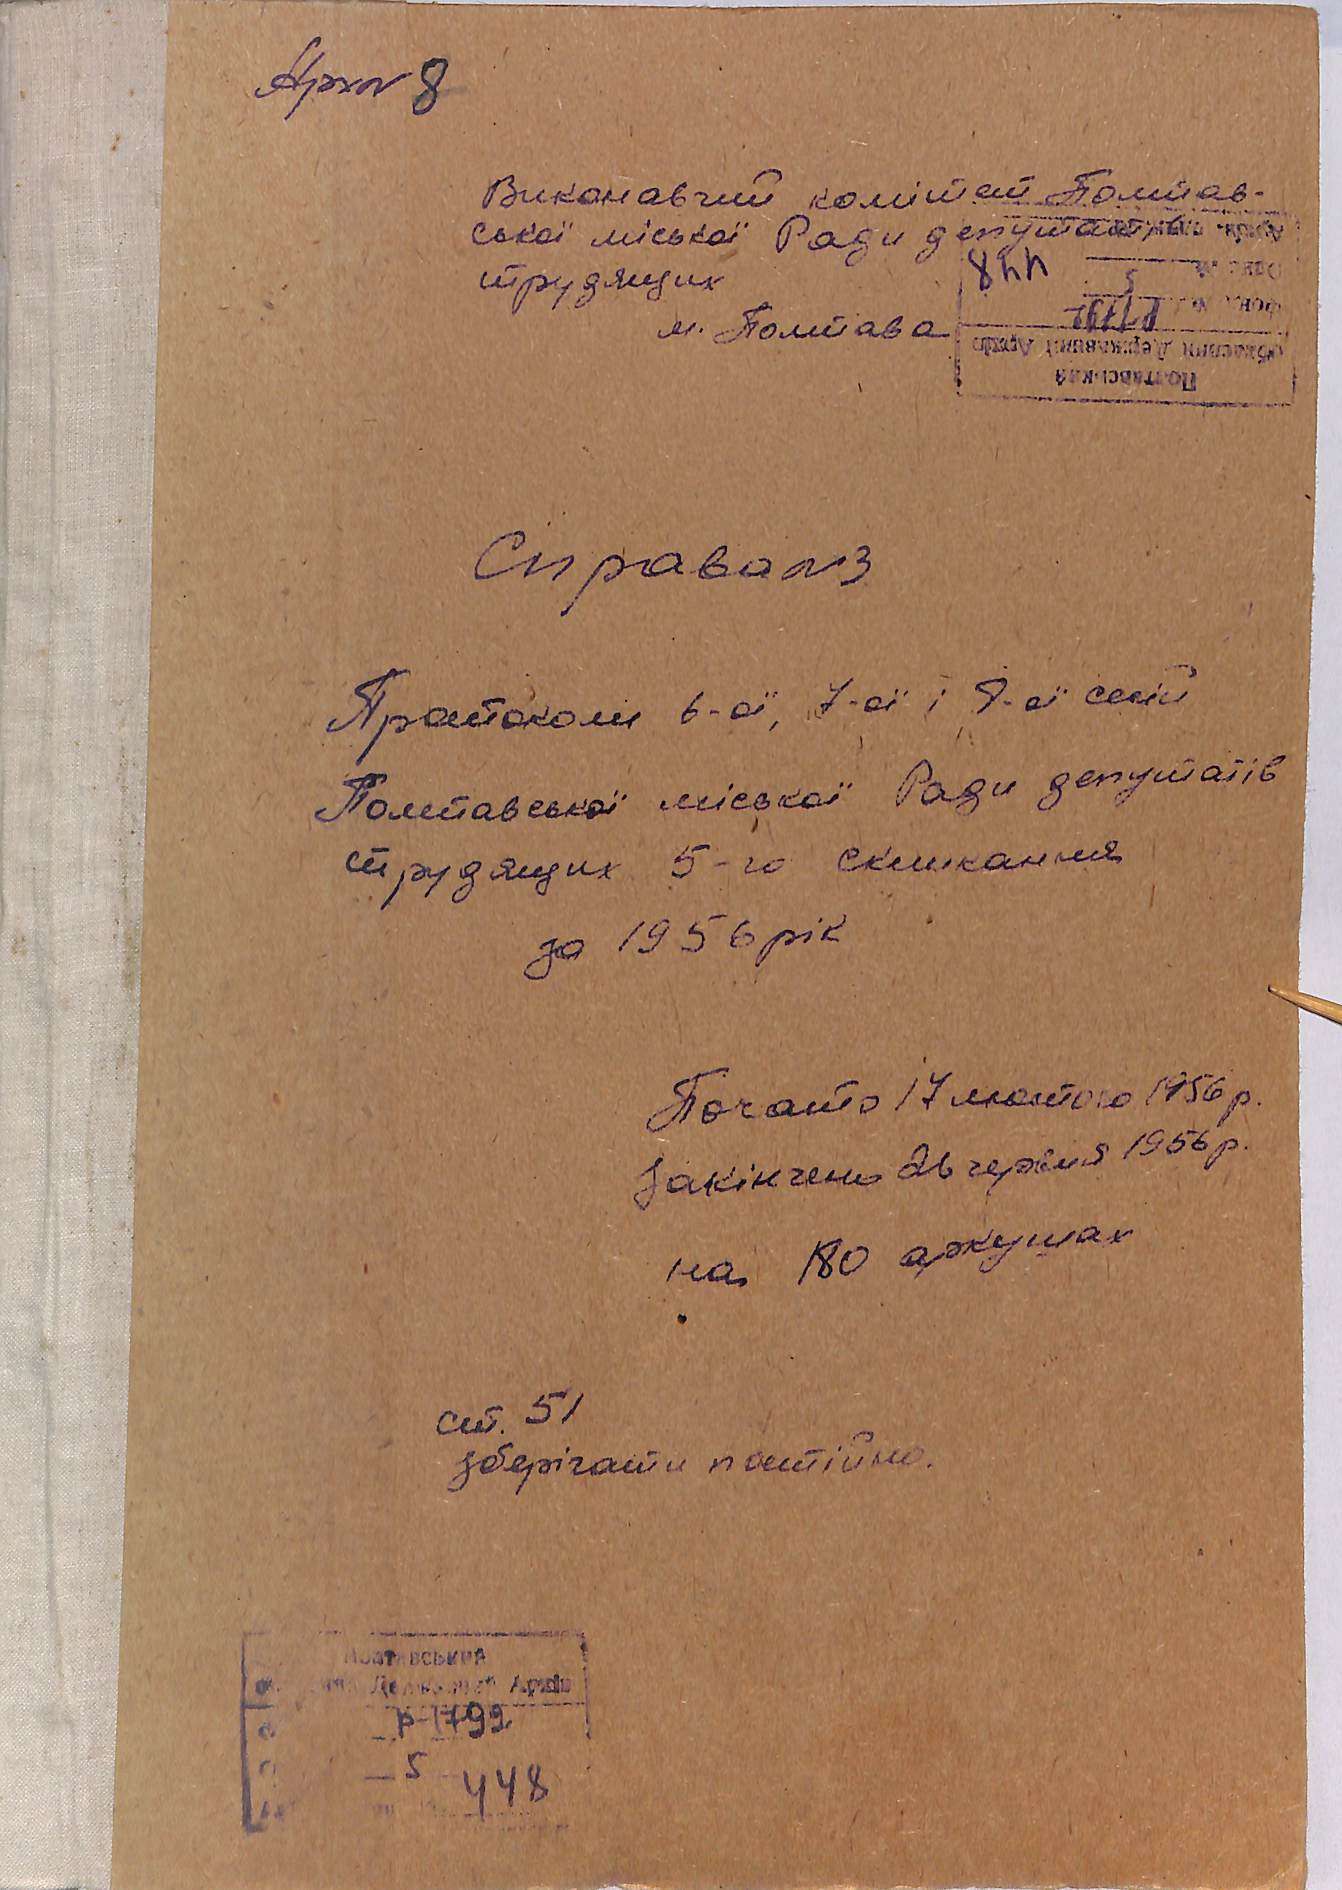 8
Виконавчий комітет Полтав-
ської міської Ради депутатів
трудящих
м. Полтава
Полтавський
Обласний Державний Архів
Фонд № Р-1792
5
448
Справа №3
Протоколи 6-ої, 7-ої і 8-ої сесій
Полтавської міської Ради депутатів
трудящих 5-го скликання
за 1956 рік
Почато 17 лютого 1956 р.
Закінчено 26 червня 1956 р.
на 180 аркушах
ст. 51
зберігати постійно.
Полтавський
Державний Архів
Р-1792
5
448